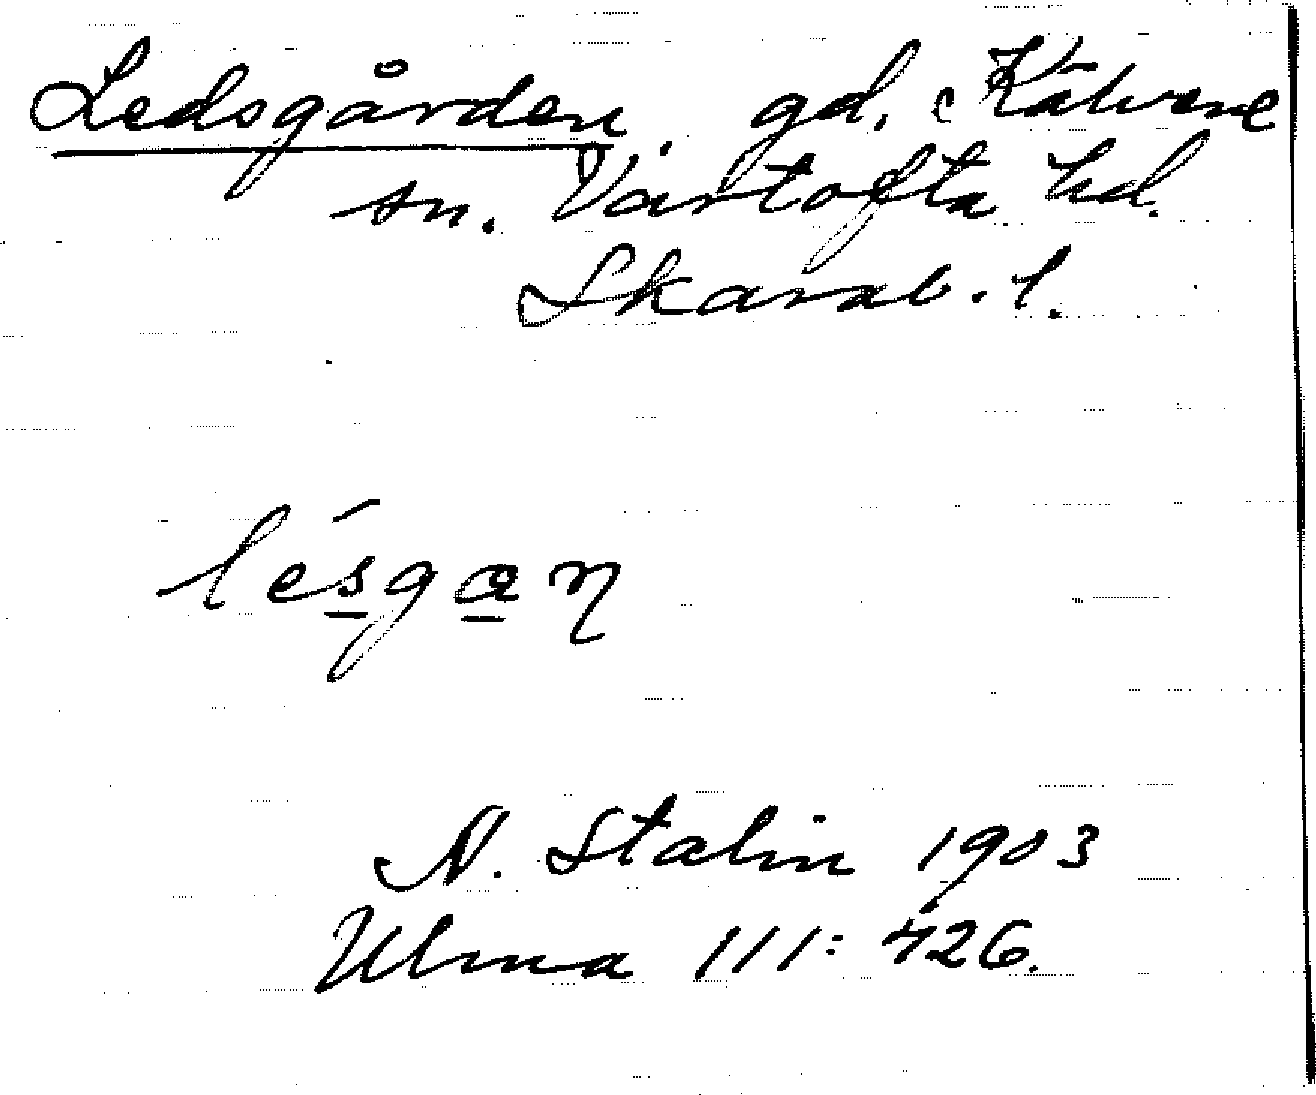 Ledsgården, gd. Kälvene
sn. Vartofta hd.
Skarab. l.
lésgan
N. Stalin 1903
Ulma 111: 426.